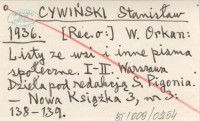 CYWIŃSKI Stanisław
1936. [Rec. o:] W. Orkan:
Listy ze wsi i inne pisma
społeczne. I-II. Warszawa
Dzieła pod redakcją S. Pigonia.
— Nowa Książka 3, nr 3:
138-139.